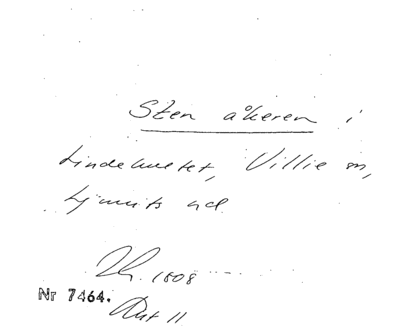 Sten åkeren i
Lindehvetet, Villie sn,
Ljunits hd
1808
Nr 7464.
Akt 11